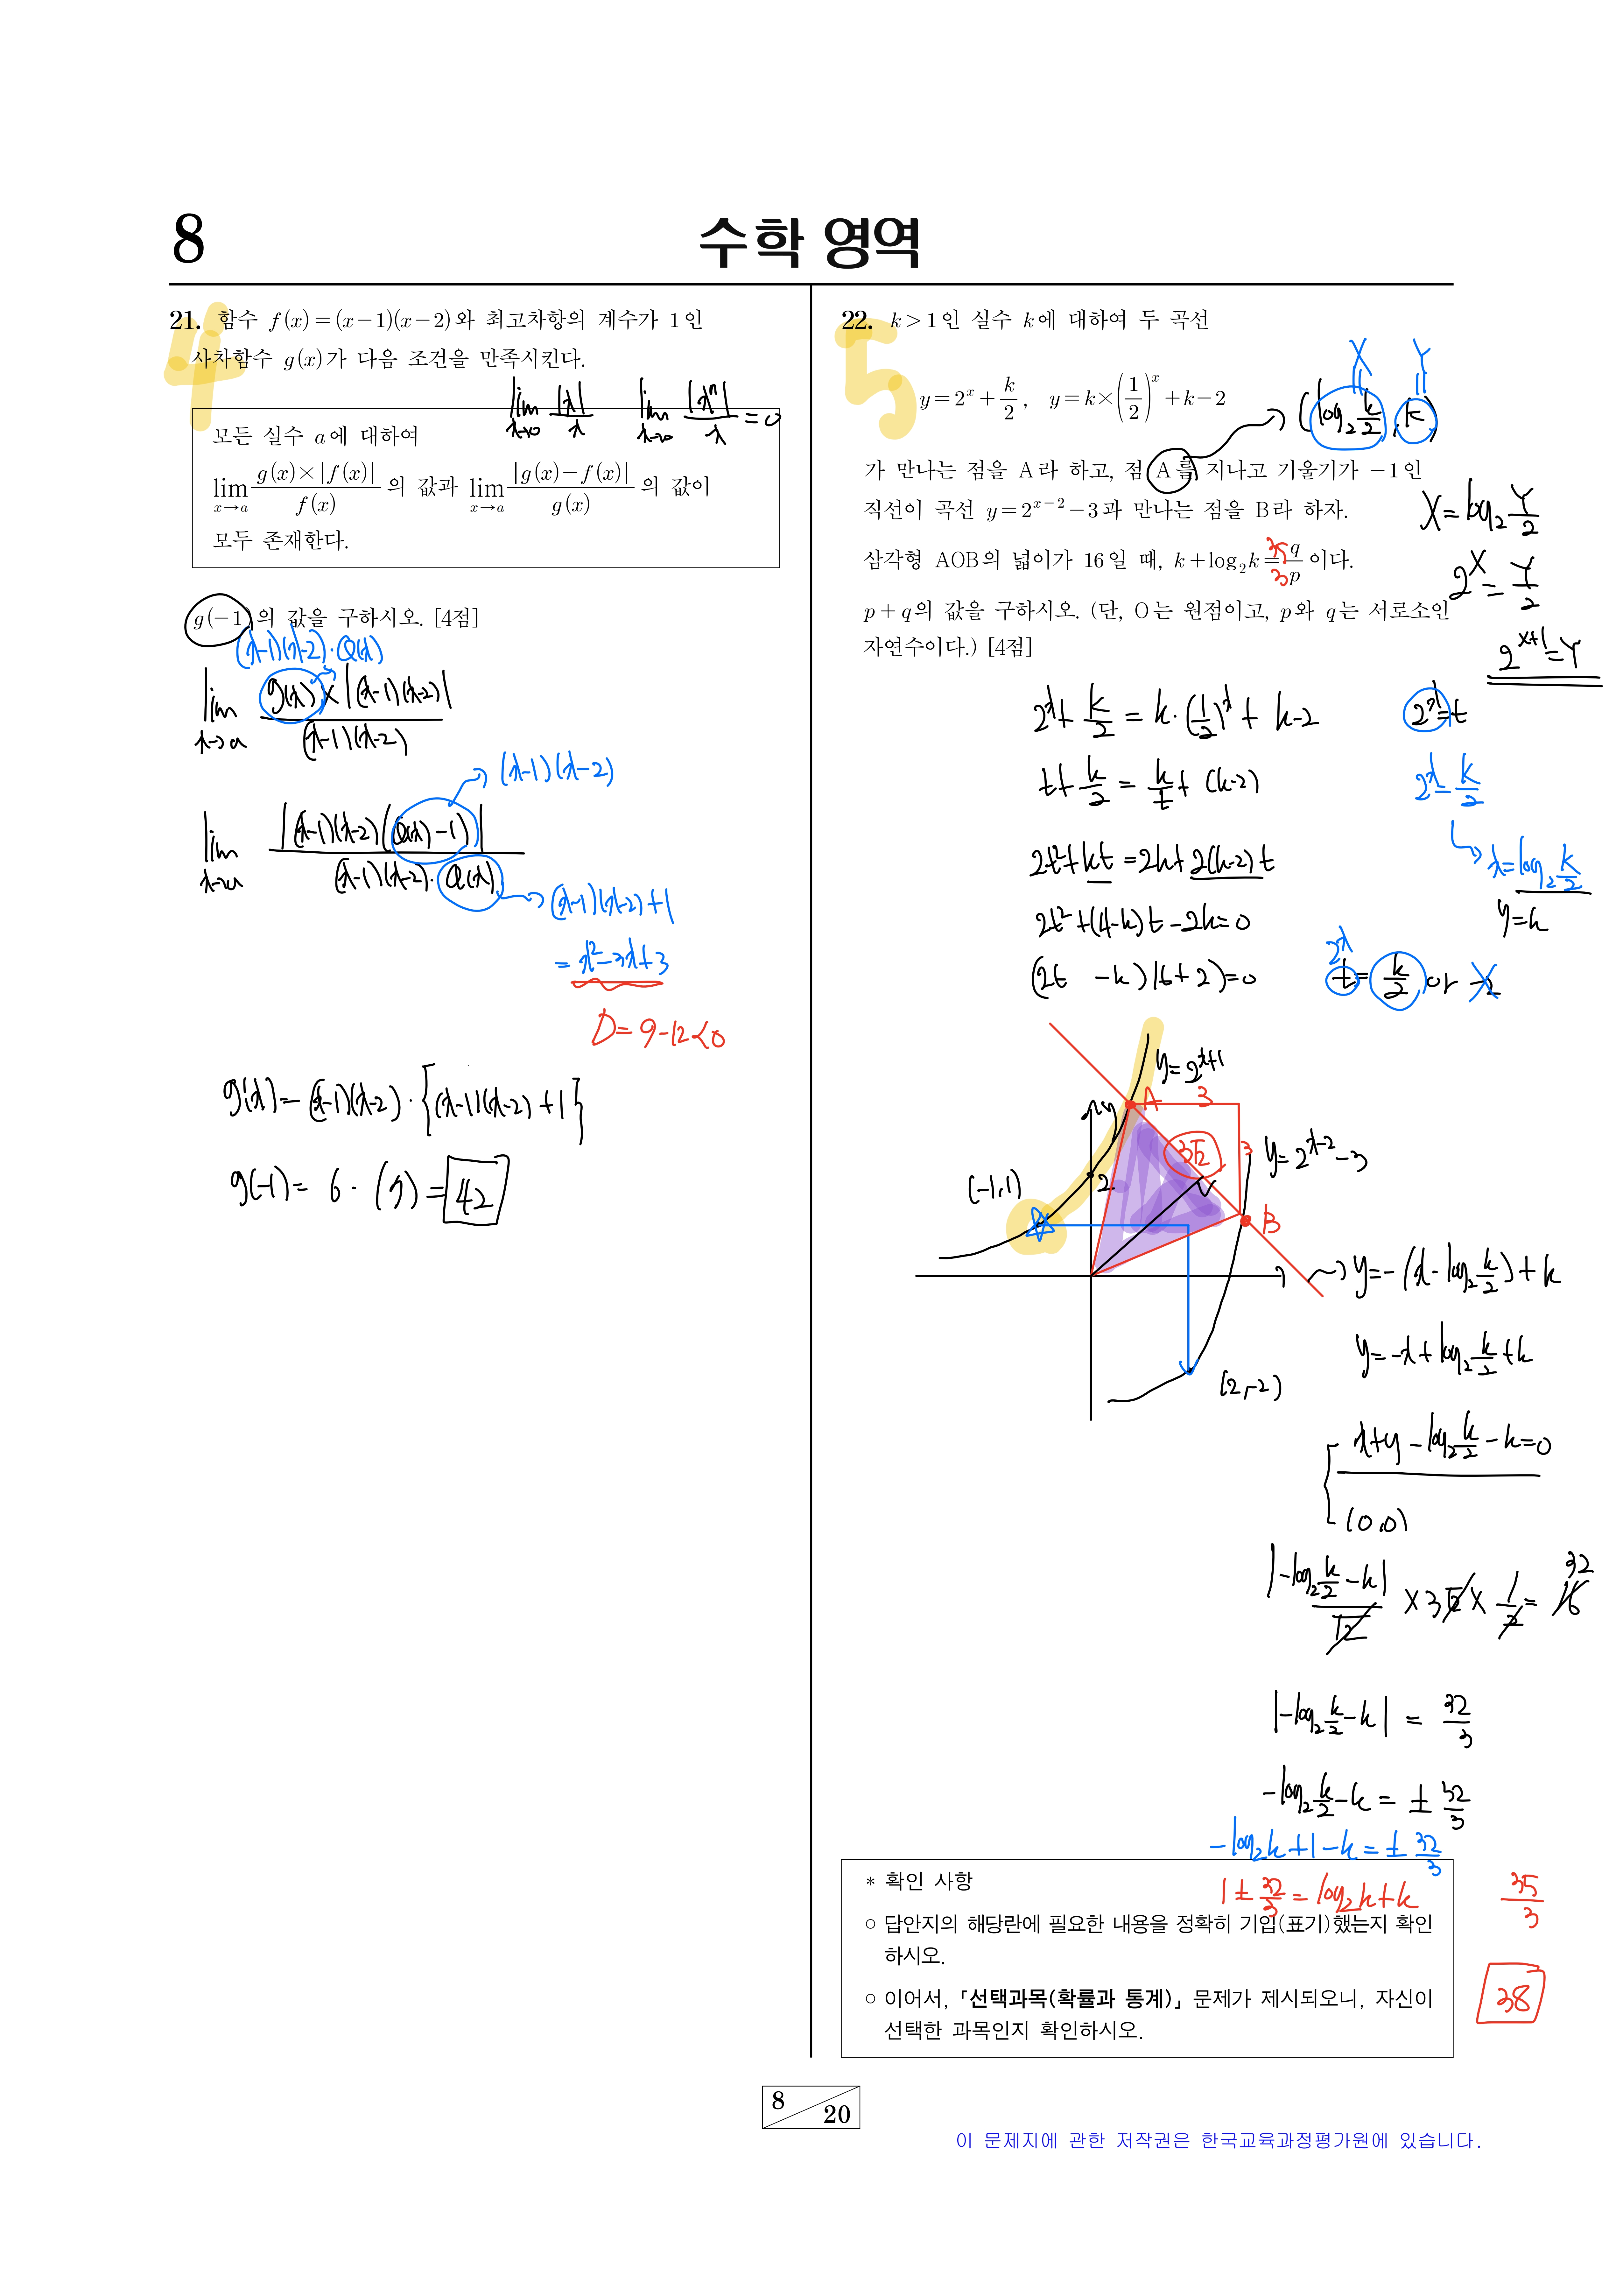 8
수학 영역
21. 함수 f(x)=(x-1)(x-2)와 최고차항의 계수가 1인
사차함수 g(x)가 다음 조건을 만족시킨다.
lim_{x→0} |x|/x   lim_{x→0} |xⁿ|/x = 0
모든 실수 a에 대하여
lim_{x→a} g(x)×|f(x)|/f(x) 의 값과 lim_{x→a} |g(x)-f(x)|/g(x) 의 값이
모두 존재한다.
g(-1)의 값을 구하시오. [4점]
(x-1)(x-2)·Q(x)
lim_{x→a} g(x)×|(x-1)(x-2)|/(x-1)(x-2)
(x-1)(x-2)
lim_{x→a} |(x-1)(x-2)(Q(x)-1)|/(x-1)(x-2)·Q(x)
(x-1)(x-2)+1
= x²-3x+3
D= 9-12<0
g(x)=(x-1)(x-2)·{(x-1)(x-2)+1}
g(-1)= 6·(7)= 42
4
22. k>1인 실수 k에 대하여 두 곡선
5
y=2^x+k/2, y=k×(1/2)^x+k-2
X Y
(log₂ k/2, k)
가 만나는 점을 A라 하고, 점 A를 지나고 기울기가 -1인
직선이 곡선 y=2^{x-2}-3과 만나는 점을 B라 하자.
삼각형 AOB의 넓이가 16일 때, k+log₂k=q/p이다.
35
3
p+q의 값을 구하시오. (단, O는 원점이고, p와 q는 서로소인
자연수이다.) [4점]
X=log₂ Y/2
2^X = Y/2
2^{X+1}=Y
2^x+k/2 = k·(1/2)^x + k-2
2^x=t
t+k/2 = k/t + (k-2)
2^x=k/2
2t²+kt=2k+2(k-2)t
x=log₂ k/2
2t²+(4-k)t-2k=0
y=k
(2t -k)(t+2)=0
2^x
t= k/2 or -2
y=2^{x+1}
A 3
3√2
3
y=2^{x-2}-3
(-1,1)
2
B
(2,-2)
y=-(x-log₂ k/2)+k
y=-x+log₂ k/2+k
x+y-log₂ k/2-k=0
(0,0)
|-log₂ k/2-k|/√2 ×3√2× 1/2= 16
32
|-log₂ k/2-k| = 32/3
-log₂ k/2-k= ± 32/3
-log₂k+1-k= ± 32/3
1± 32/3 = log₂k+k
35/3
38
* 확인 사항
○ 답안지의 해당란에 필요한 내용을 정확히 기입(표기)했는지 확인
하시오.
○ 이어서, 「선택과목(확률과 통계)」 문제가 제시되오니, 자신이
선택한 과목인지 확인하시오.
8
20
이 문제지에 관한 저작권은 한국교육과정평가원에 있습니다.